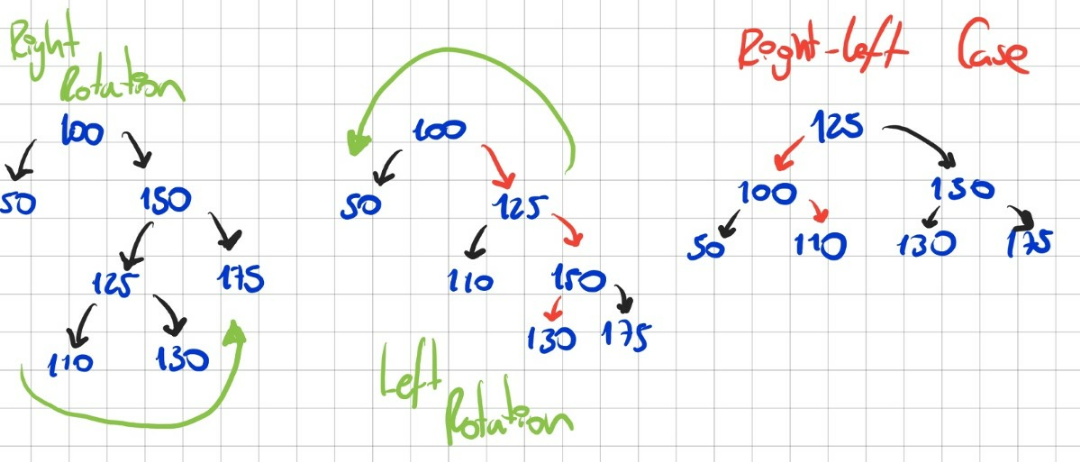 Right
Rotation
100
50
150
125
175
110
130
100
50
125
110
150
130
175
Left
Rotation
Right-left Case
125
100
150
50
110
130
175